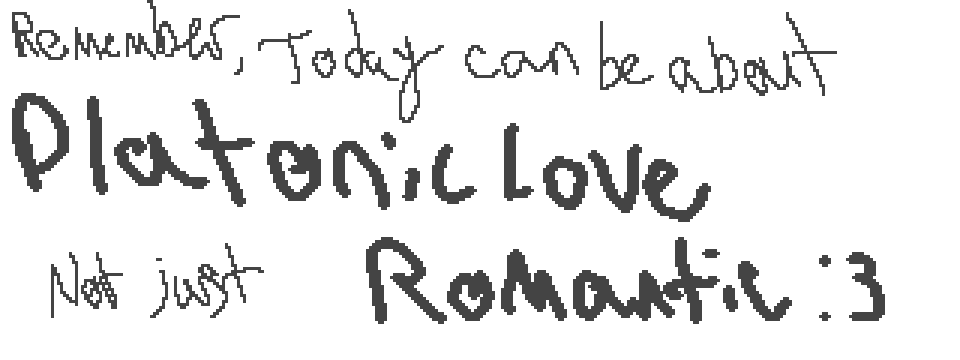 Remember, Today can be about
Platonic Love
Not just Romantic :3